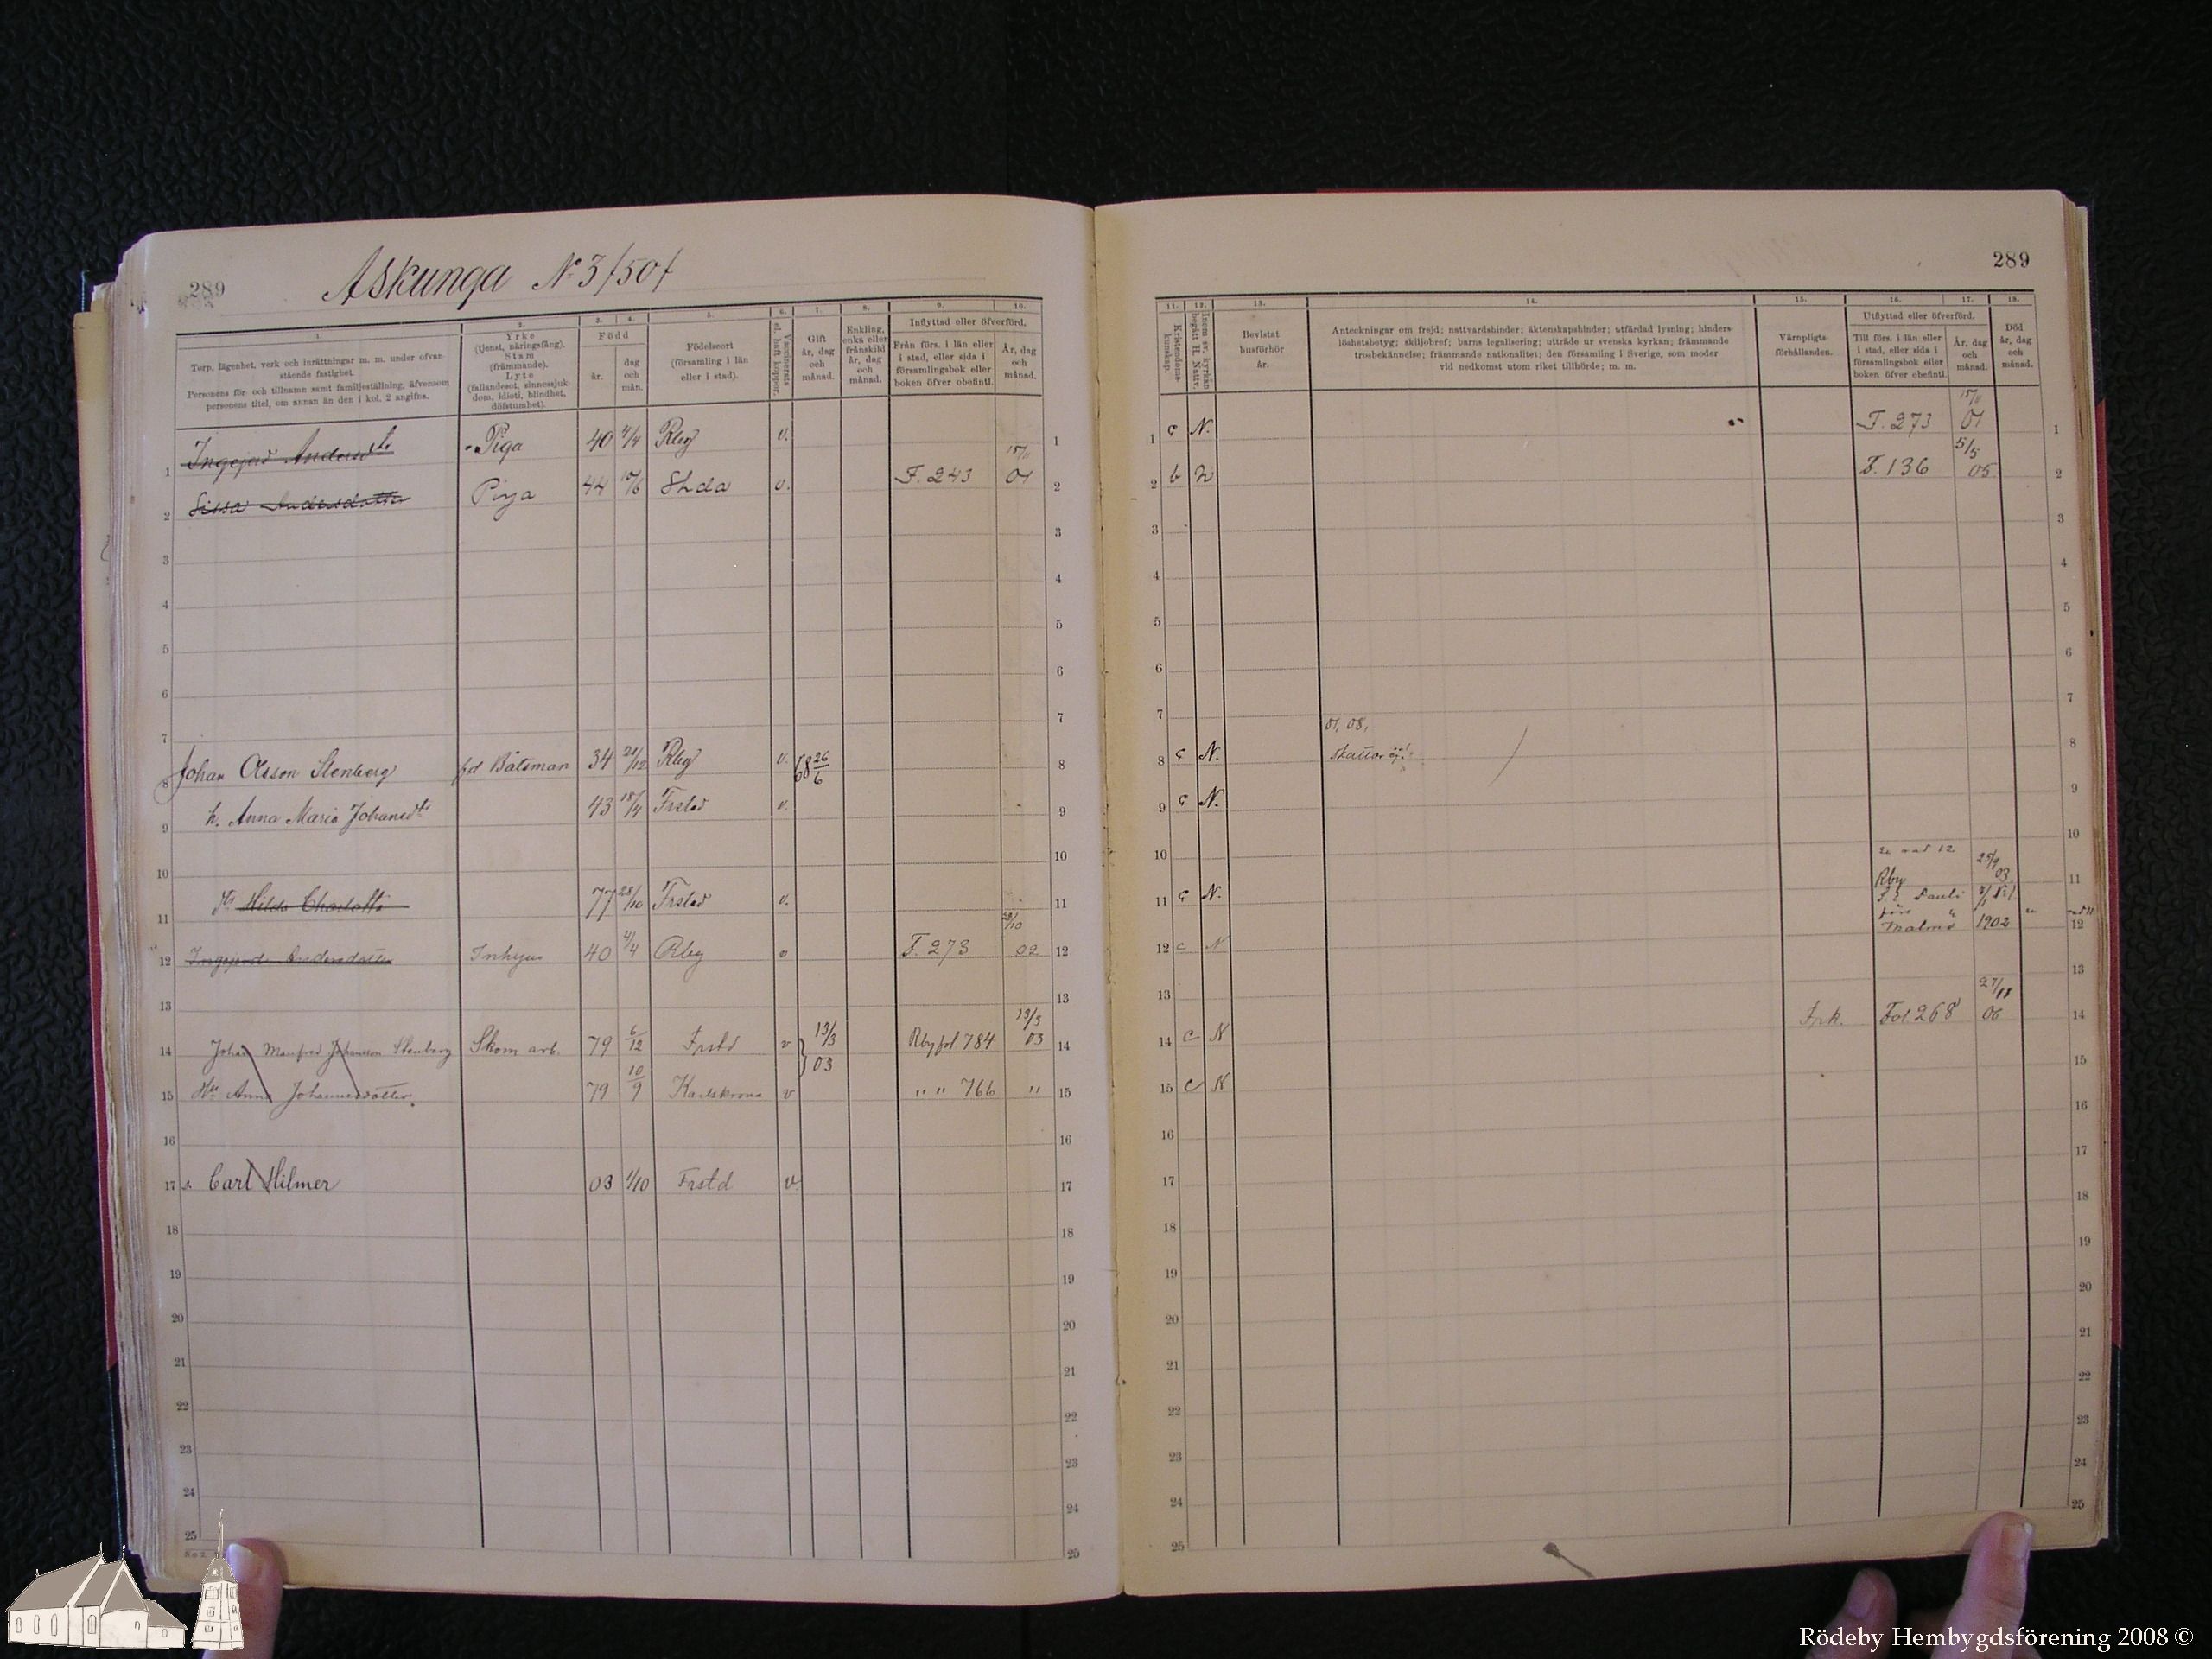 289
Askunga No 3 /50/
1.
Torp, lägenhet, verk och inrättningar m. m. under ofvan-
stående fastighet.
Personens för- och tillnamn samt familjeställning, äfvensom
personens titel, om annan än den i kol. 2 angifna.
2.
Yrke
(tjenst, näringsfång).
Stam
(främmande).
Lyte
(fallandesot, sinnessjuk-
dom, idioti, blindhet,
döfstumhet).
3. 4.
Född
år.
dag
och
mån.
5.
Födelseort
(församling i län
eller i stad).
6.
Vaccinerats
el. haft koppor.
7.
Gift
år, dag
och
månad.
8.
Enkling,
enka eller
frånskild
år, dag
och
månad.
9. 10.
Inflyttad eller öfverförd.
Från förs. i län eller
i stad, eller sida i
församlingsbok eller
boken öfver obefintl.
År, dag
och
månad.
1 Ingejerd Andersdtr Piga 40 4/4 Rby v. 1
2 Sissa Andersdotter Piga 44 Shda v. F. 243 15/11 01 2
3 3
4 4
5 5
6 6
7 7
8 Johan Olsson Stenberg fd Båtsman 34 21/12 Rby v. 68 26/6 8
9 h. Anna Maria Johansdtr 43 18/4 Frstad v. 9
10 10
11 dtr Hilda Charlotta 77 28/10 Frstad v. 11
12 Ingejerd Andersdotter Inhyses 40 4/4 Rby v F. 273 28/10 02 12
13 13
14 Johan Manfred Johansson Stenberg Skom. arb. 79 6/12 Frstd v 13/3 03 Rby fol 784 13/3 03 14
15 Hu Anna Johannesdotter. 79 10/9 Karlskrona v " " 766 " 15
16 16
17 s. Carl Hilmer 03 1/10 Frstd v. 17
18 18
19 19
20 20
21 21
22 22
23 23
24 24
25 25
289
11.
Kristendoms-
kunskap.
12.
Inom sv. kyrkan
begått H. Nattv.
13.
Bevistat
husförhör
år.
14.
Anteckningar om frejd; nattvardshinder; äktenskapshinder; utfärdad lysning; hinders-
löshetsbetyg; skiljobref; barns legalisering; utträde ur svenska kyrkan; främmande
trosbekännelse; främmande nationalitet; den församling i Sverige, som moder
vid nedkomst utom riket tillhörde; m. m.
15.
Värnpligts-
förhållanden.
16. 17.
Utflyttad eller öfverförd.
Till förs. i län eller
i stad, eller sida i
församlingsbok eller
boken öfver obefintl.
År, dag
och
månad.
18.
Död
år, dag
och
månad.
1 c N. F. 273 15/11 01 1
2 b N F. 136 5/5 05 2
3 3
4 4
5 5
6 6
7 01, 08, 7
8 c N. 8
9 c N. 9
10 Se rad 12 10
11 c N. Rby 03. 11
Pauli
Malmö 1902
12 c N 12
13 13
14 c N Frk. Fol 268 06 14
15 c N 15
16 16
17 17
18 18
19 19
20 20
21 21
22 22
23 23
24 24
25 25
Rödeby Hembygdsförening 2008 ©